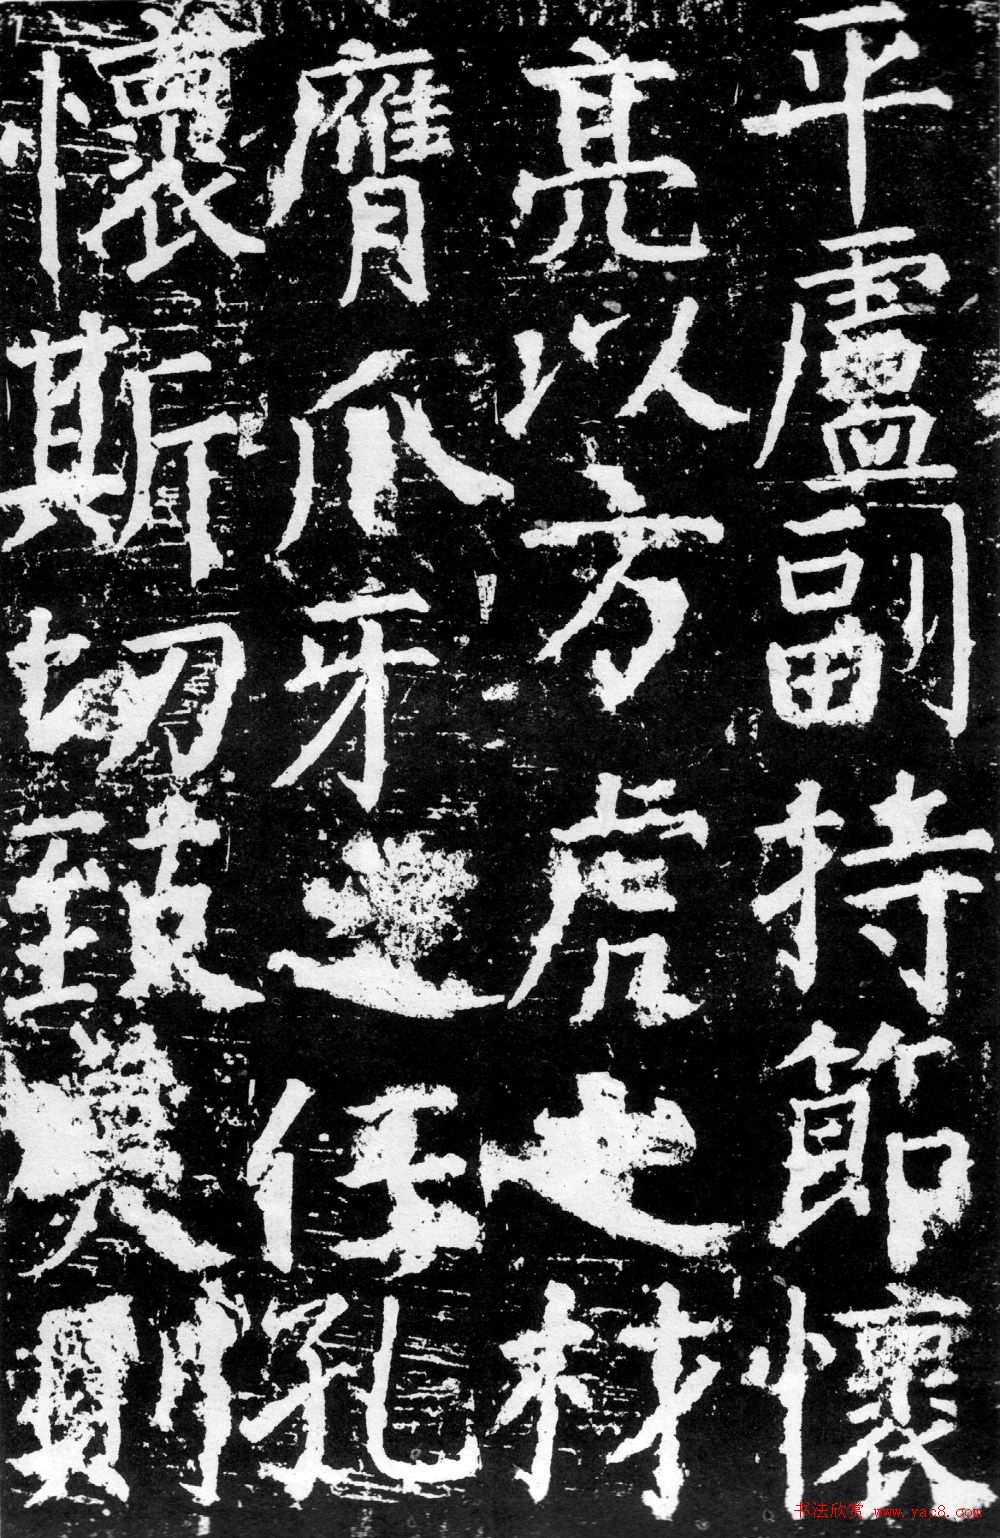 平盧副持節懷
亮以方虎之材
膺爪牙之任孔
懷斯切致美則
书法欣赏 www.yac8.com